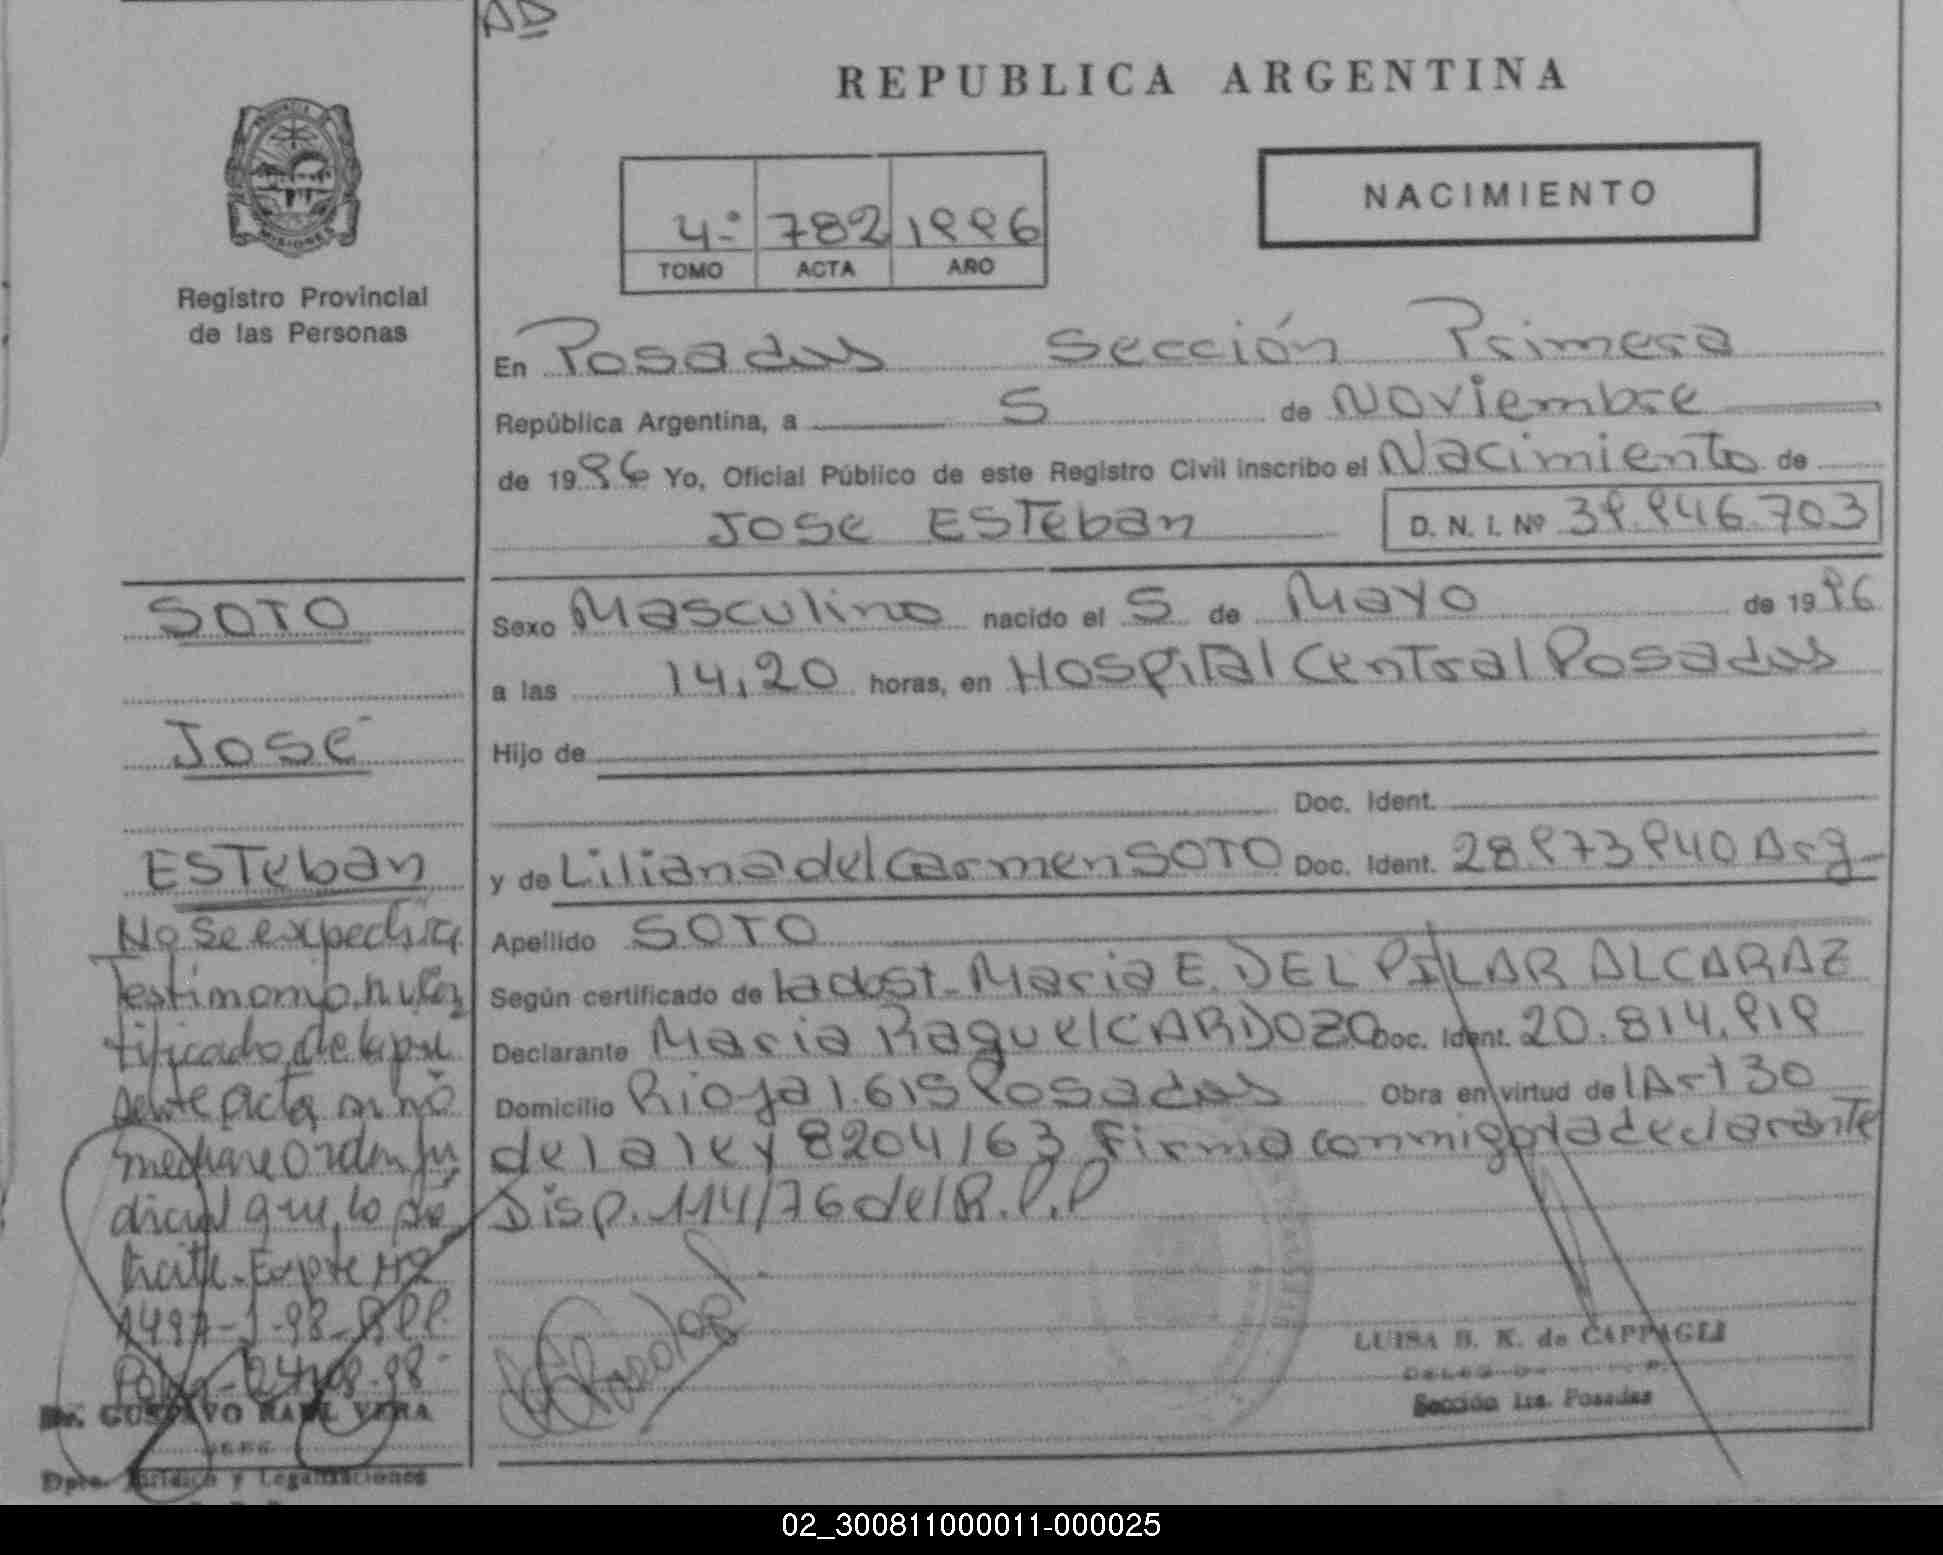 AD
REPUBLICA ARGENTINA
NACIMIENTO
4° 782 1996
TOMO ACTA AÑO
PROVINCIA
MISIONES
Registro Provincial
de las Personas
En Posadas Sección Primera
República Argentina, a 5 de Noviembre
de 1996 Yo, Oficial Público de este Registro Civil inscribo el Nacimiento de
JOSE ESTEban D. N. I. Nº 39.946.703
Sexo Masculino nacido el 5 de Mayo de 1996
a las 14,20 horas, en Hospital Central Posadas
Hijo de
Doc. Ident.
y de Liliana del Carmen SOTO Doc. Ident. 28973940 Arg
Apellido SOTO
Según certificado de la obst. Maria E. DEL PILAR ALCARAZ
Declarante Maria Raquel CARDOZO Doc. Ident. 20.814.919
Domicilio Rioja 1.615 Posadas Obra en virtud del Art 30
de la ley 8204/63 Firma conmigo la declarante
Disp. 114/76 del R.P.P
LUISA B. K. de CAPPAGLI
Sección 1ra. Posadas
SOTO
José
ESTeban
No se expedira
Testimonio ni Cer
tificado de la pre
sente acta si no
mediante Orden Ju
dicial que lo so
licite. Expte Nro
1497-J-98-RPP.
24-08-98-
Dr. GUSTAVO RAUL VERA
JEFE
Dpto. Jurídico y Legalizaciones
02_300811000011-000025